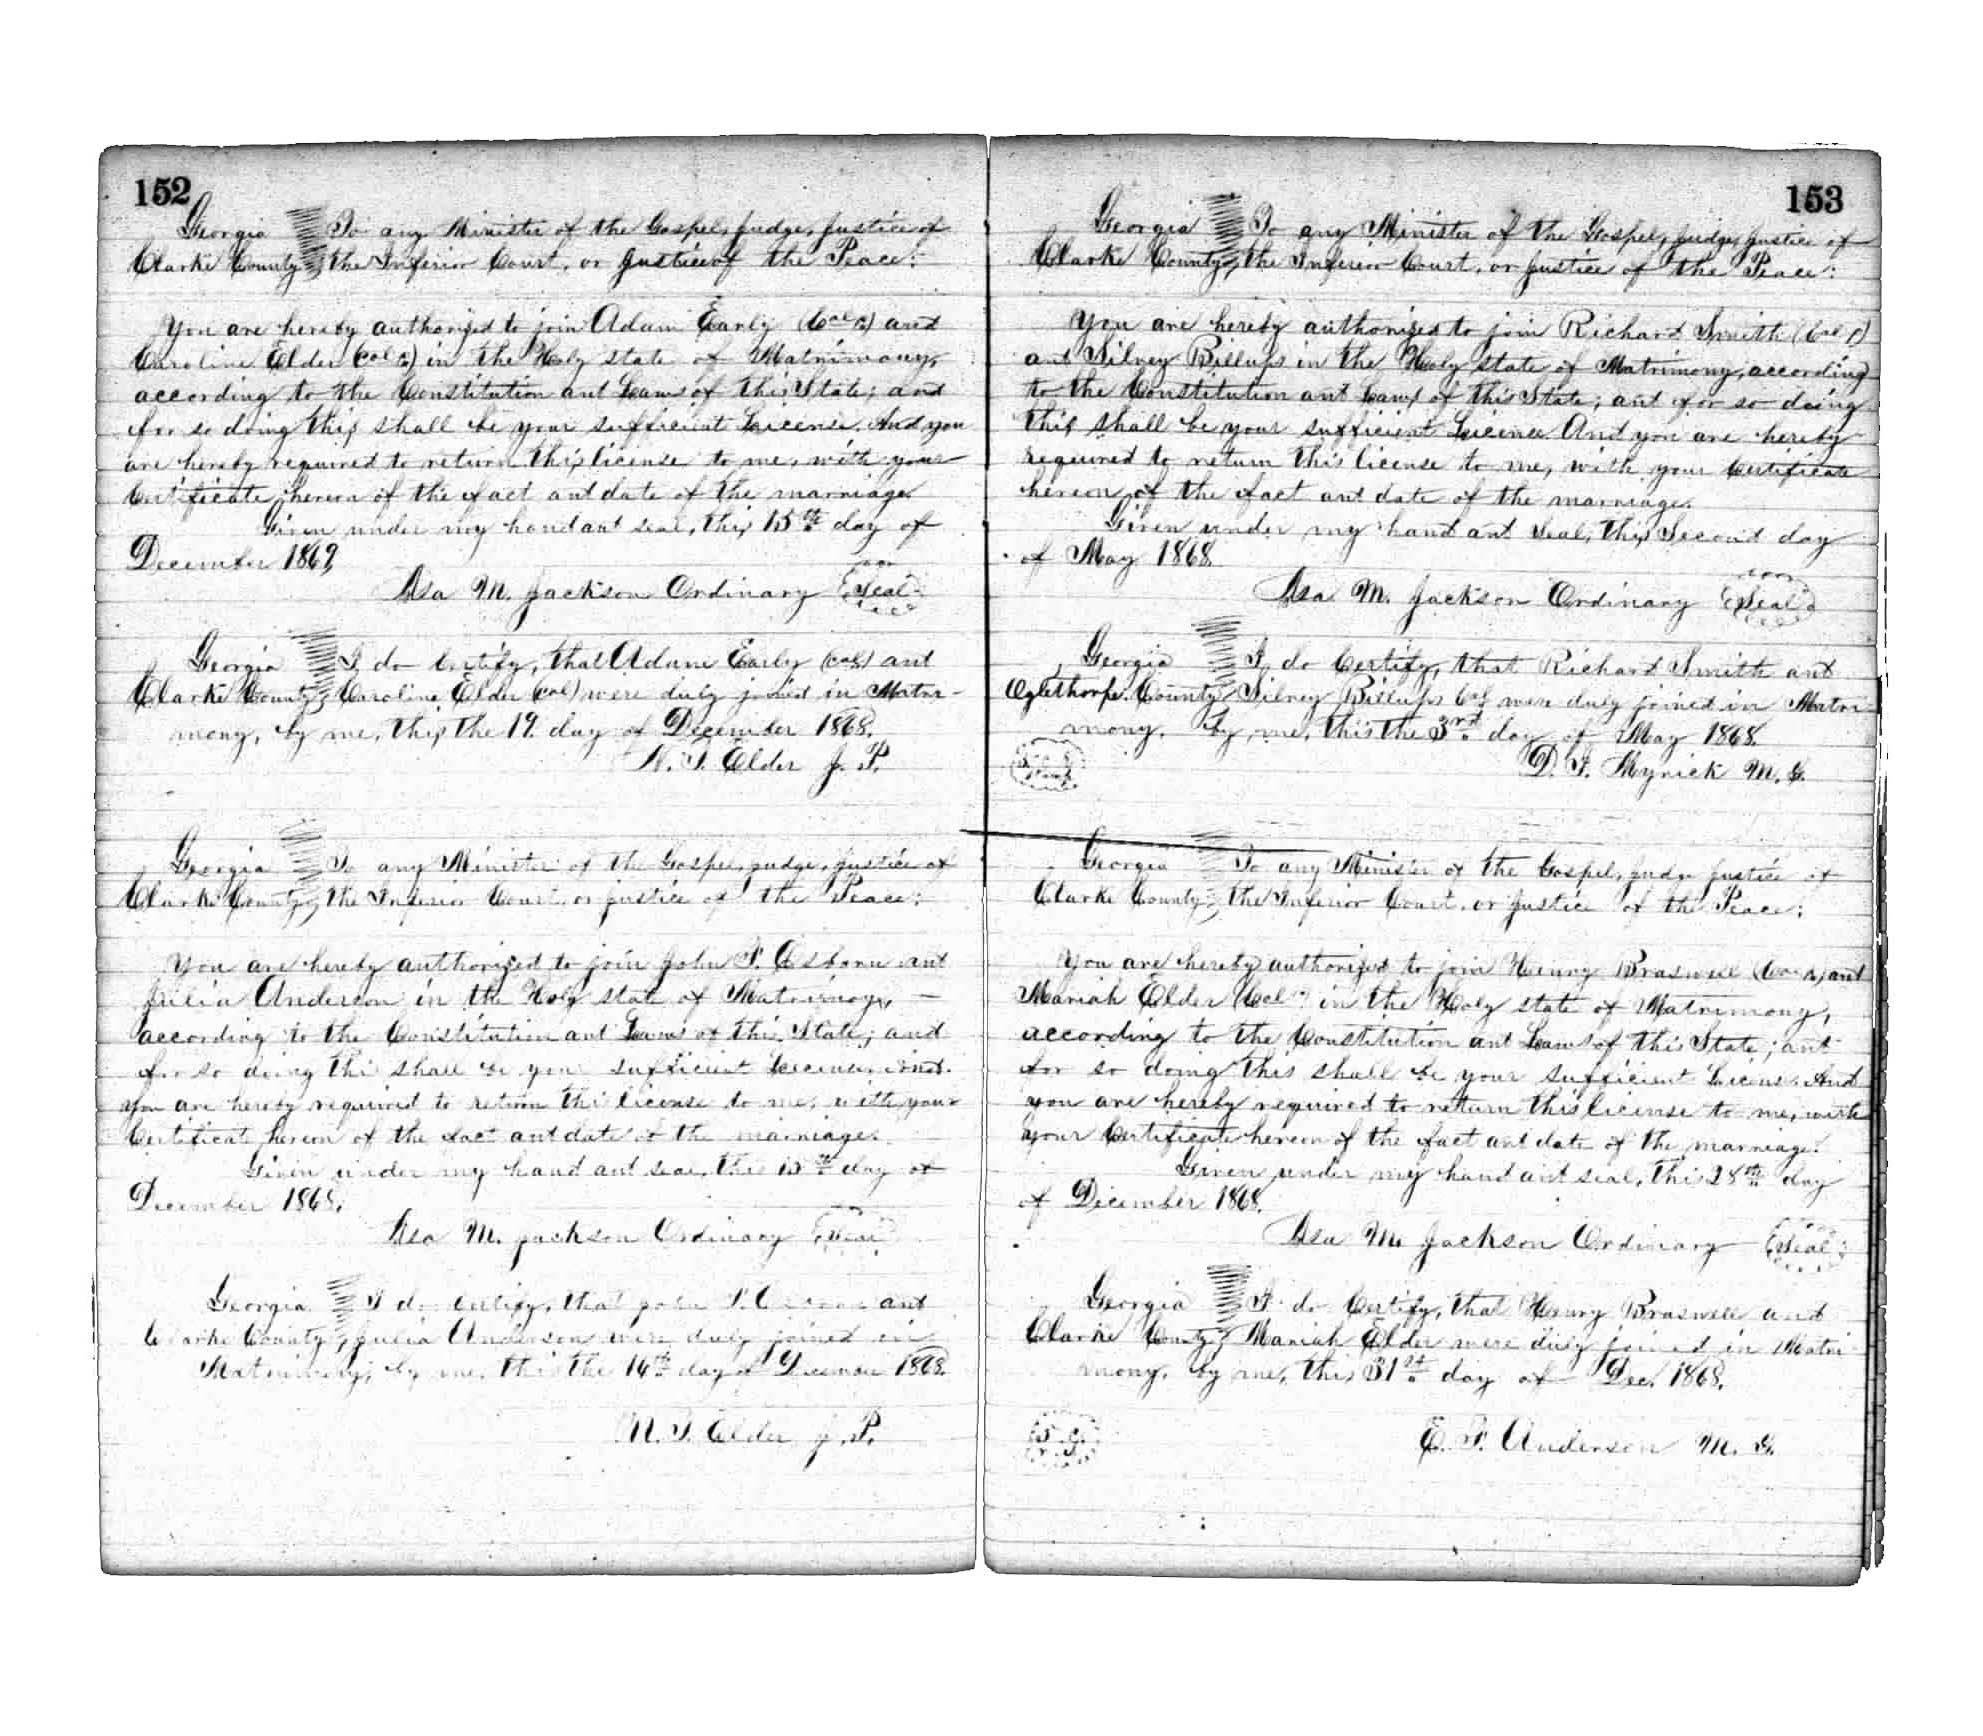 152
Georgia To any Minister of the Gospel, Judge, Justice of
Clarke County, the Inferior Court, or Justice of the Peace:
You are hereby authorized to join Adam Early (Col) and
Caroline Elder (Col) in the Holy state of Matrimony,
according to the Constitution and Laws of this State; and
for so doing this shall be your sufficient License. And you
are hereby required to return this license to me, with your
Certificate hereon of the fact and date of the marriage.
Given under my hand and seal, this 15th day of
December 1869,
Asa M. Jackson Ordinary Seal
Georgia I, do Certify, that Adam Early (Col) and
Clarke County, Caroline Elder (Col) were duly joined in Matri-
mony, by me, this the 19. day of December 1868.
N. T. Elder J. P.
Georgia To any Minister of the Gospel, Judge, Justice of
Clarke County, the Inferior Court, or Justice of the Peace:
You are hereby authorized to join John T. Osborn and
Julia Anderson in the Holy state of Matrimony, —
according to the Constitution and Laws of this State; and
for so doing this shall be your sufficient License. And
you are hereby required to return this license to me, with your
Certificate hereon of the fact and date of the marriage.
Given under my hand and seal, this 15th day of
December 1868.
Asa M. Jackson Ordinary Seal
Georgia I do Certify, that John T. and
Clarke County, Julia Anderson were duly joined in
Matrimony, by me, this the 16th day of December 1868.
N. T. Elder J. P.
153
Georgia To any Minister of the Gospel, Judge, Justice of
Clarke County, the Inferior Court, or Justice of the Peace:
You are hereby authorized to join Richard Smith (Col)
and Silney Billups in the Holy state of Matrimony, according
to the Constitution and Laws of this State; and for so doing
this shall be your sufficient License And you are hereby
required to return this license to me, with your Certificate
hereon of the fact and date of the marriage.
Given under my hand and Seal, this Second day
of May 1868.
Asa M. Jackson Ordinary Seal
Georgia I, do Certify, that Richard Smith and
Oglethorpe County, Silney Billups Col were duly joined in Matri
mony, by me, this the 3rd day of May 1868.
D. T. Myrick M. G.
Georgia To any Minister of the Gospel, Judge Justice of
Clarke County, the Inferior Court, or Justice of the Peace:
You are hereby authorized to join Henry Braswell (Col) and
Mariah Elder (Col) in the Holy state of Matrimony,
according to the Constitution and Laws of this State; and
for so doing this shall be your sufficient License. And
you are hereby required to return this license to me, with
your Certificate hereon of the fact and date of the marriage.
Given under my hand and seal, this 28th day
of December 1868.
Asa M. Jackson Ordinary Seal
Georgia I do Certify, that Henry Braswell and
Clarke County, Mariah Elder were duly joined in Matri
mony, by me, this 31st day of Dec. 1868.
E. T. Anderson M. G.